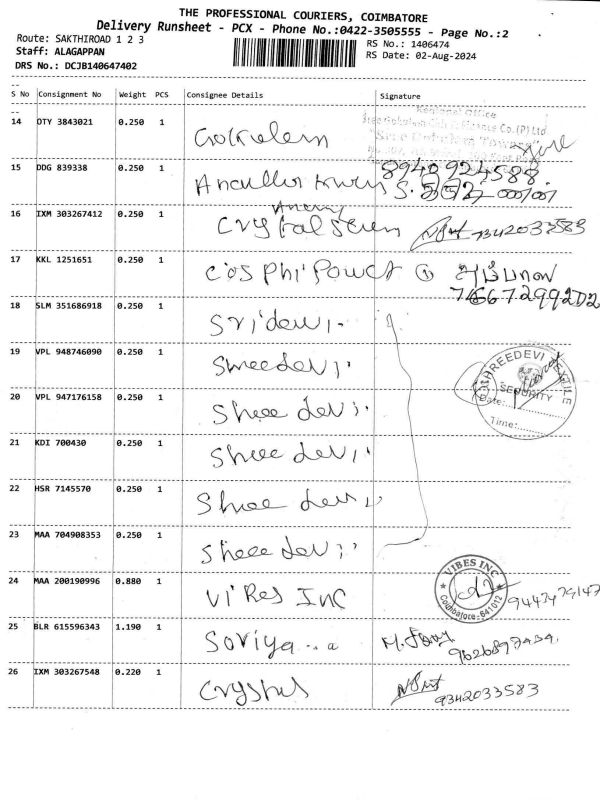 THE PROFESSIONAL COURIERS, COIMBATORE
Delivery Runsheet - PCX - Phone No.:0422-3505555 - Page No.:2
Route: SAKTHIROAD 1 2 3
RS No.: 1406474
Staff: ALAGAPPAN
RS Date: 02-Aug-2024
DRS No.: DCJB140647402
S No Consignment No Weight PCS Consignee Details Signature
14 OTY 3843021 0.250 1
Regional Office
15 DDG 839338 0.250 1 8940924588
16 IXM 303267412 0.250 1 Crystal 9342033583
17 KKL 1251651 0.250 1 Cos Phi Power
18 SLM 351686918 0.250 1 Sri devi
19 VPL 948746090 0.250 1 Shree devi
SHREEDEVI TEXTILE
SECURITY
Date:
Time:
20 VPL 947176158 0.250 1 Shree devi
21 KDI 700430 0.250 1 Shree devi
22 HSR 7145570 0.250 1 Shree devi
23 MAA 704908353 0.250 1 Shree devi
24 MAA 200190996 0.880 1 Vibes INC
VIBES INC
Coimbatore-641012
25 BLR 615596343 1.190 1 Soriya
26 IXM 303267548 0.220 1 9342033583